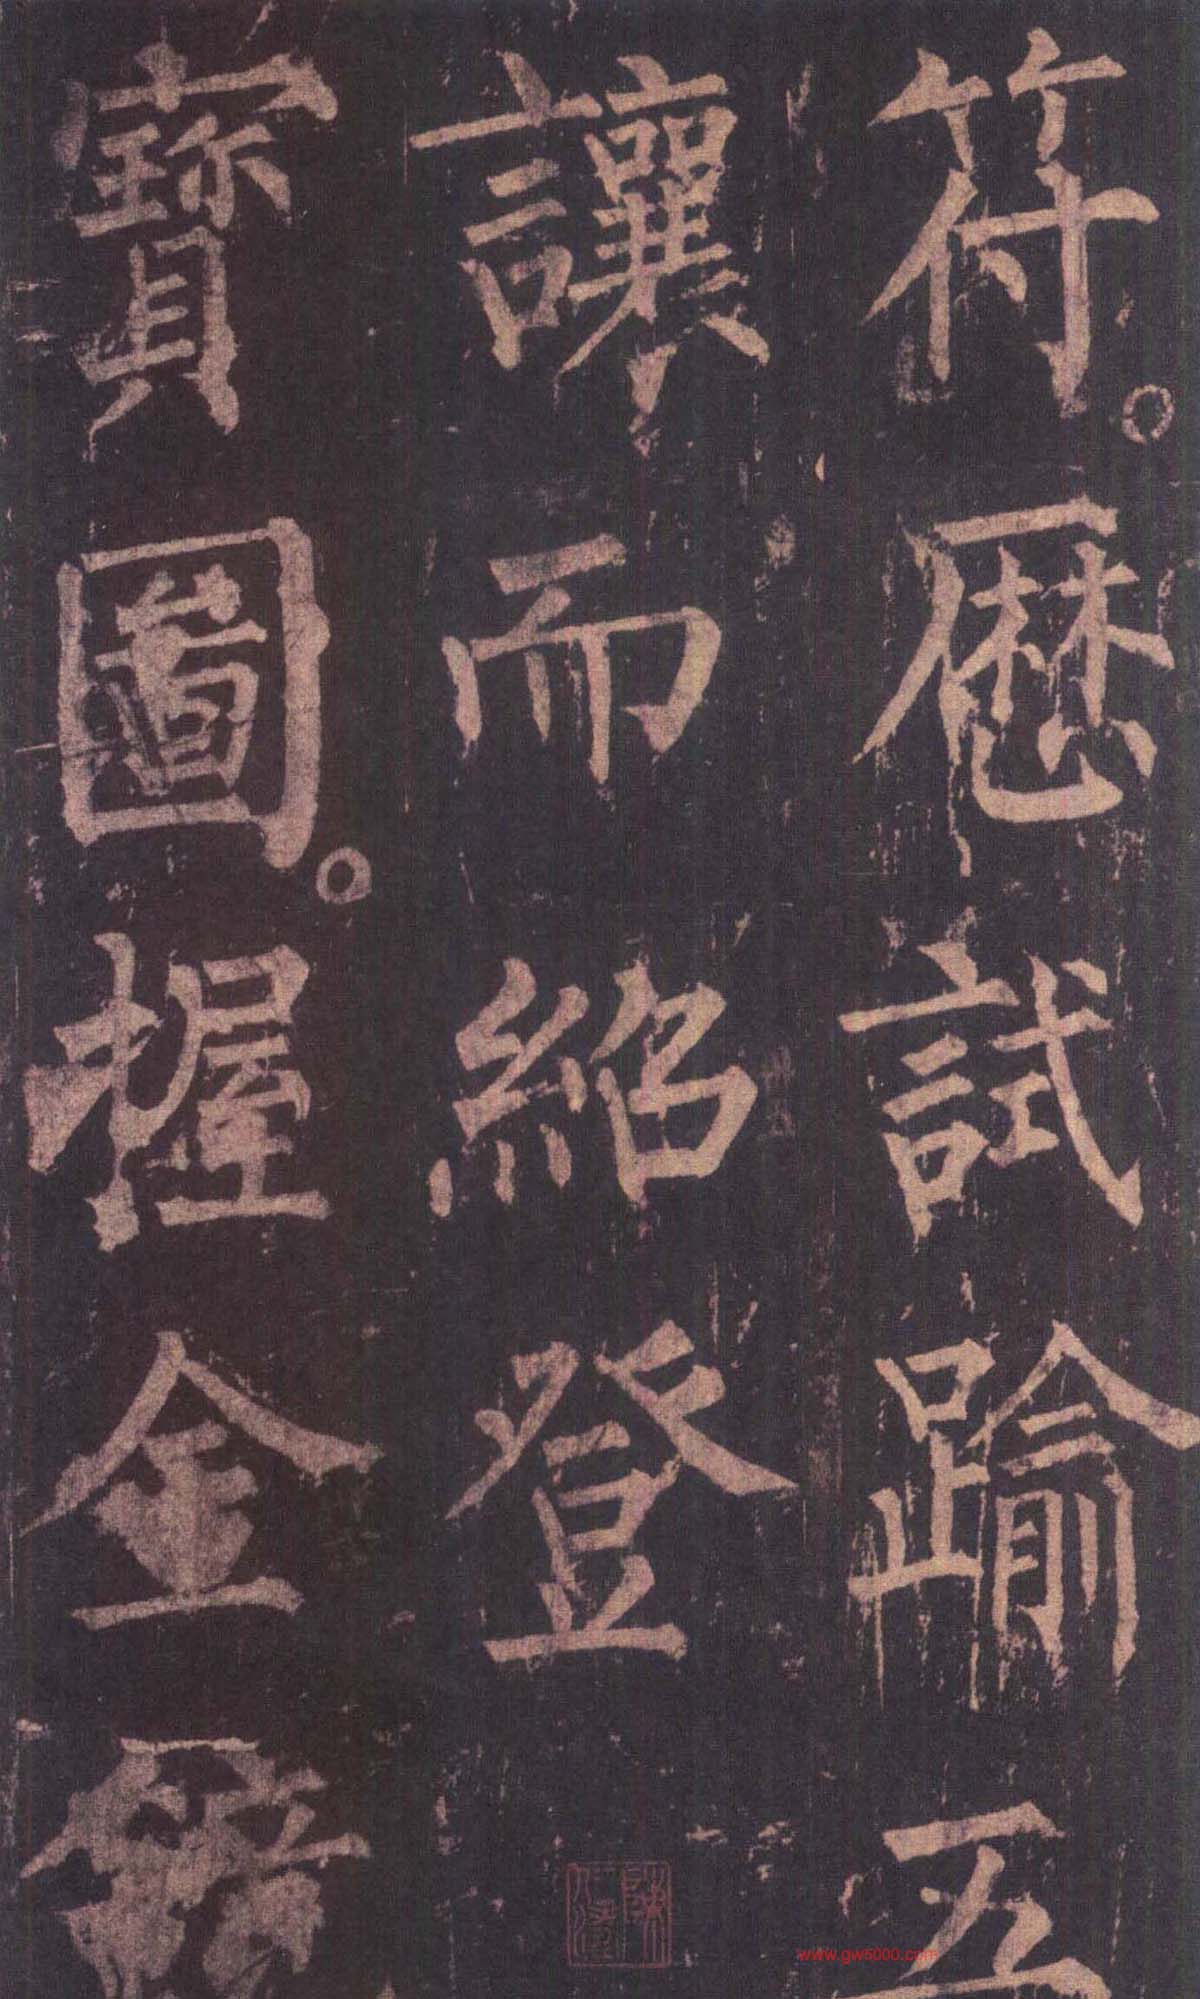 符。歷試踰五
讓而紹登
寶圖。握金
www.gw5000.com